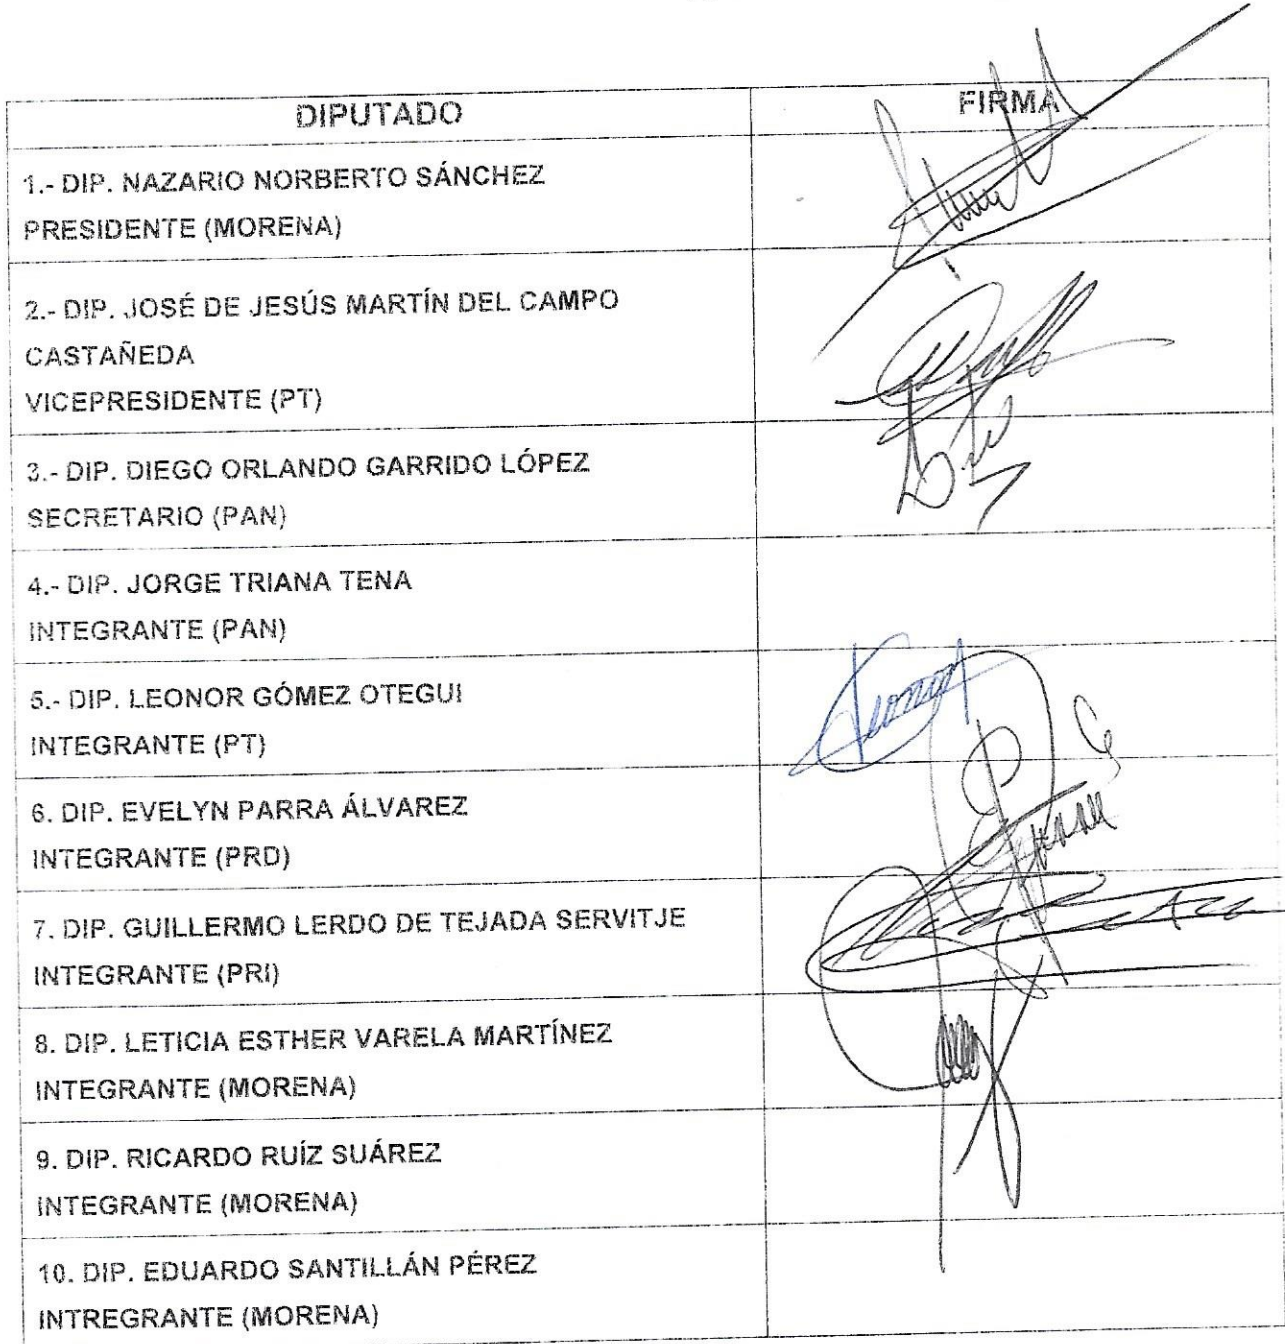 DIPUTADO FIRMA
1.- DIP. NAZARIO NORBERTO SÁNCHEZ
PRESIDENTE (MORENA)
2.- DIP. JOSÉ DE JESÚS MARTÍN DEL CAMPO
CASTAÑEDA
VICEPRESIDENTE (PT)
3.- DIP. DIEGO ORLANDO GARRIDO LÓPEZ
SECRETARIO (PAN)
4.- DIP. JORGE TRIANA TENA
INTEGRANTE (PAN)
5.- DIP. LEONOR GÓMEZ OTEGUI
INTEGRANTE (PT)
6. DIP. EVELYN PARRA ÁLVAREZ
INTEGRANTE (PRD)
7. DIP. GUILLERMO LERDO DE TEJADA SERVITJE
INTEGRANTE (PRI)
8. DIP. LETICIA ESTHER VARELA MARTÍNEZ
INTEGRANTE (MORENA)
9. DIP. RICARDO RUÍZ SUÁREZ
INTEGRANTE (MORENA)
10. DIP. EDUARDO SANTILLÁN PÉREZ
INTREGRANTE (MORENA)